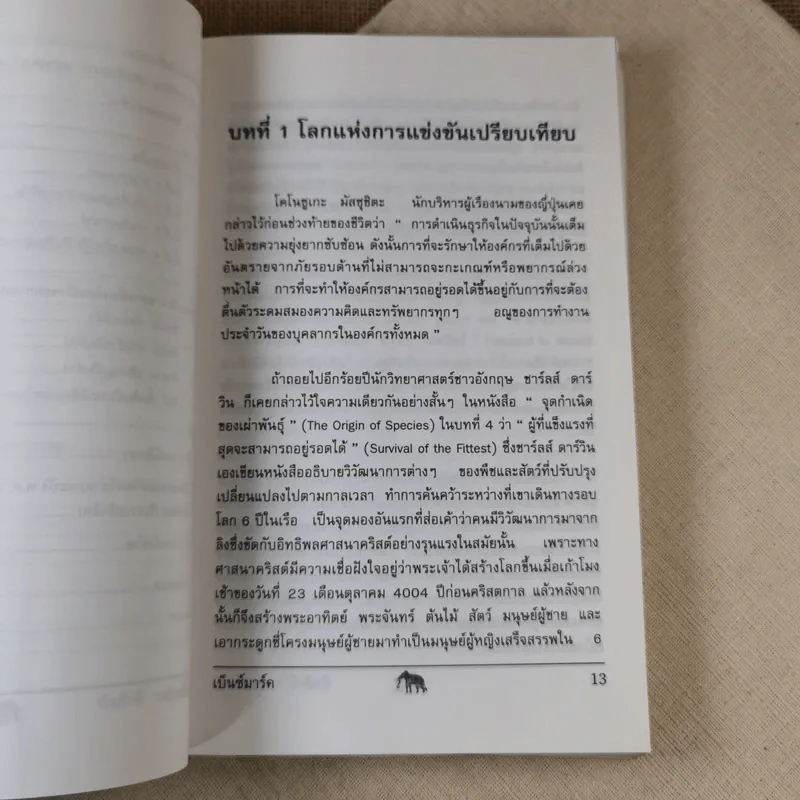 บทที่ 1 โลกแห่งการแข่งขันเปรียบเทียบ
โคโนชูเกะ มัสชุชิตะ นักบริหารผู้เรืองนามของญี่ปุ่นเคย
กล่าวไว้ก่อนช่วงท้ายของชีวิตว่า “ การดำเนินธุรกิจในปัจจุบันนั้นเต็ม
ไปด้วยความยุ่งยากซับซ้อน ดังนั้นการที่จะรักษาให้องค์กรที่เต็มไปด้วย
อันตรายจากภัยรอบด้านที่ไม่สามารถจะกะเกณฑ์หรือพยากรณ์ล่วง
หน้าได้ การที่จะทำให้องค์กรสามารถอยู่รอดได้ขึ้นอยู่กับการที่จะต้อง
ตื่นตัวระดมสมองความคิดและทรัพยากรทุกๆ อณูของการทำงาน
ประจำวันของบุคลากรในองค์กรทั้งหมด ”
ถ้าถอยไปอีกร้อยปีนักวิทยาศาสตร์ชาวอังกฤษ ชาร์ลส์ ดาร์
วิน ก็เคยกล่าวไว้ใจความเดียวกันอย่างสั้นๆ ในหนังสือ “ จุดกำเนิด
ของเผ่าพันธุ์ ” (The Origin of Species) ในบทที่ 4 ว่า “ ผู้ที่แข็งแรงที่
สุดจะสามารถอยู่รอดได้ ” (Survival of the Fittest) ซึ่งชาร์ลส์ ดาร์วิน
เองเขียนหนังสืออธิบายวิวัฒนาการต่างๆ ของพืชและสัตว์ที่ปรับปรุง
เปลี่ยนแปลงไปตามกาลเวลา ทำการค้นคว้าระหว่างที่เขาเดินทางรอบ
โลก 6 ปีในเรือ เป็นจุดมองอันแรกที่ส่อเค้าว่าคนมีวิวัฒนาการมาจาก
ลิงซึ่งขัดกับอิทธิพลศาสนาคริสต์อย่างรุนแรงในสมัยนั้น เพราะทาง
ศาสนาคริสต์มีความเชื่อฝังใจอยู่ว่าพระเจ้าได้สร้างโลกขึ้นเมื่อเก้าโมง
เช้าของวันที่ 23 เดือนตุลาคม 4004 ปีก่อนคริสตกาล แล้วหลังจาก
นั้นก็จึงสร้างพระอาทิตย์ พระจันทร์ ต้นไม้ สัตว์ มนุษย์ผู้ชาย และ
เอากระดูกซี่โครงมนุษย์ผู้ชายมาทำเป็นมนุษย์ผู้หญิงเสร็จสรรพใน 6
เบ็นช์มาร์ค 13